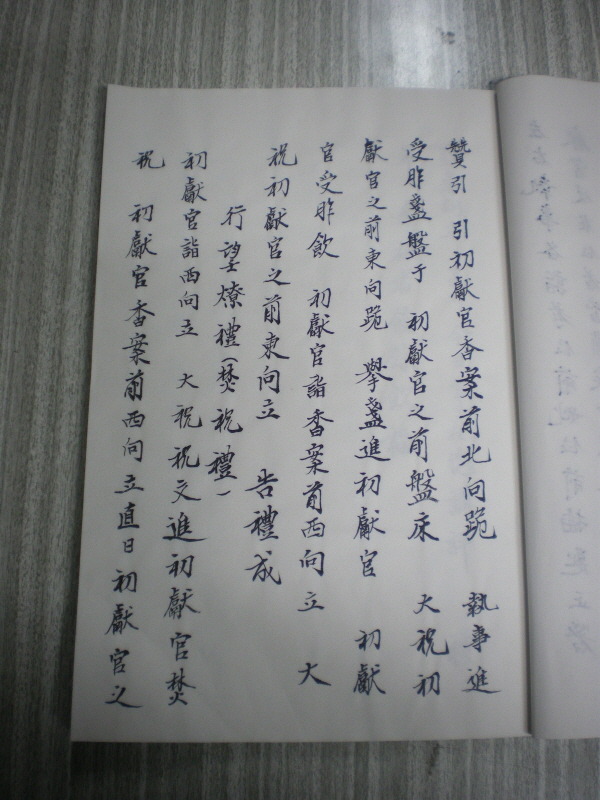 贊引 引初獻官香案前北向跪 執事進
受胙盞盤于 初獻官之前盤床 大祝初
獻官之前東向跪 擧盞進初獻官 初獻
官受胙飮 初獻官詣香案前西向立 大
祝初獻官之前東向立 告禮成
行望燎禮(焚祝禮)
初獻官詣西向立 大祝祝文進初獻官焚
祝 初獻官香案前西向立直日初獻官之